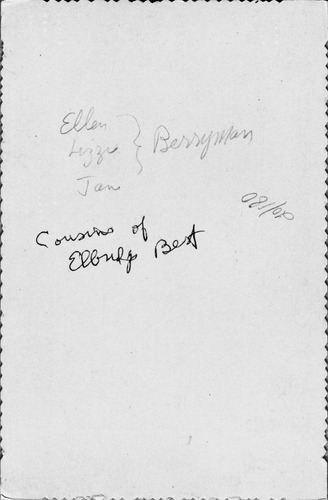 Ellen
Lizzie } Berryman
Jane
Cousins of
Elbridge Best